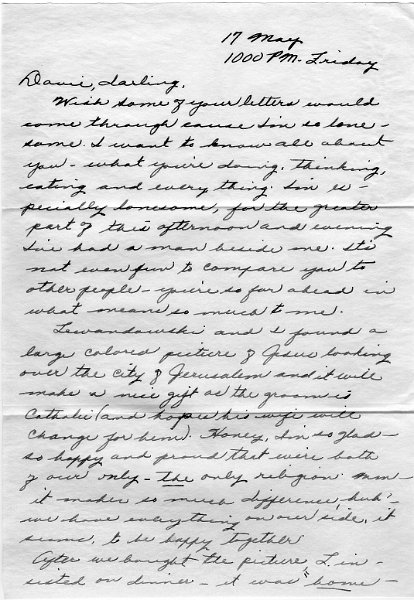 17 May
1000 PM. Friday
Davie, darling,
Wish some of your letters would
come through cause I'm so lone-
some. I want to know all about
you - what you're doing, thinking,
eating and everything. I'm es-
pecially lonesome, for the greater
part of this afternoon and evening
I've had a man beside me. It's
not even fun to compare you to
other people - you're so far ahead in
what means so much to me.
Lewandowski and I found a
large colored picture of Jesus looking
over the city of Jerusalem and it will
make a nice gift as the groom is
Catholic (and hopes his wife will
change for him). Honey, I'm so glad -
so happy and proud that we're both
of our only - the only religion. Mm -
it makes so much difference, huh? -
we have everything on our side, it
seems, to be happy together.
After we bought the picture, L. in-
sisted on dinner - it was "home -